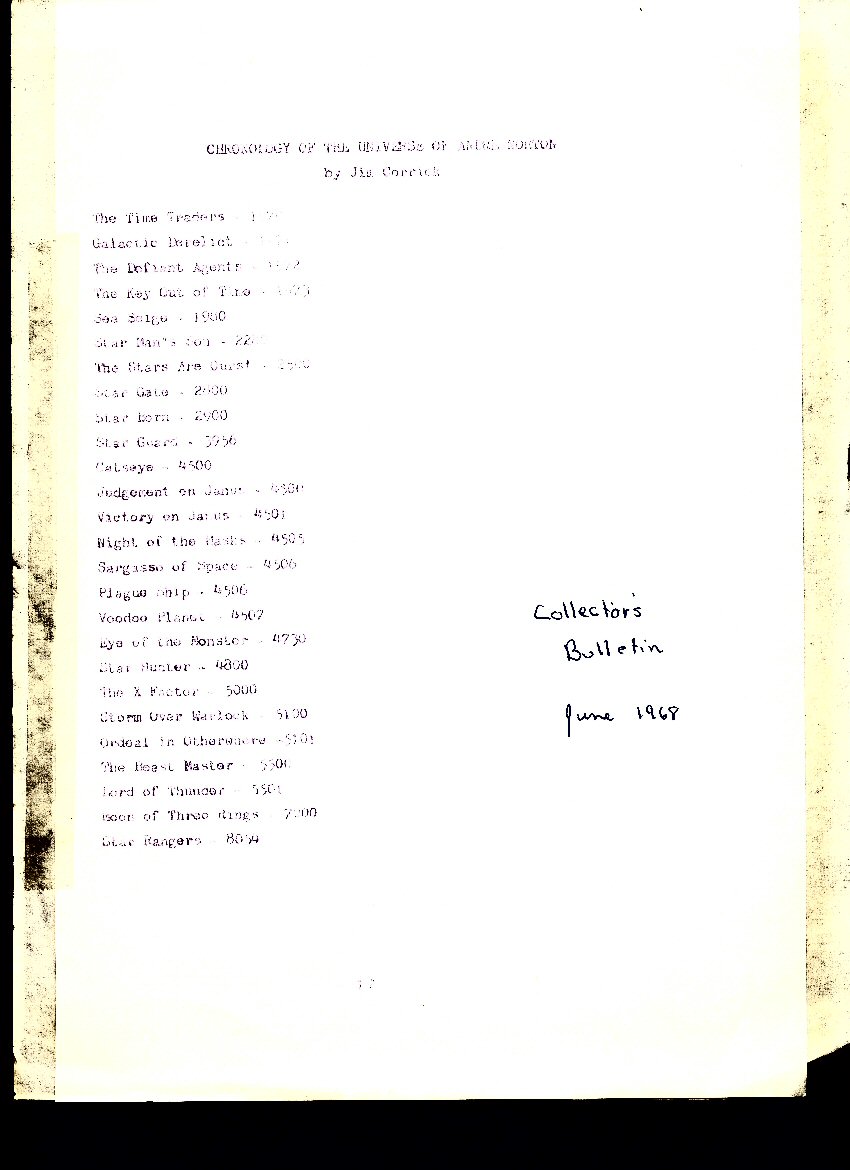 CHRONOLOGY OF THE UNIVERSE OF ANDRE NORTON
by Jim Corrick
The Time Traders -
Galactic Derelict -
The Defiant Agents -
The Key Out of Time -
Sea Seige - 1980
Star Man's Son -
The Stars Are Ours! -
Star Gate - 2400
Star Born - 2900
Star Guard - 3956
Catseye - 4500
Judgement on Janus - 4500
Victory on Janus - 4501
Night of the Masks - 4505
Sargasso of Space - 4506
Plague Ship - 4506
Voodoo Planet - 4507
Eye of the Monster - 4730
Star Hunter - 4800
The X Factor - 5000
Storm Over Warlock - 5100
Ordeal in Otherwhere - 5101
The Beast Master - 5500
Lord of Thunder - 5501
Moon of Three Rings - 7200
Star Rangers - 8054
Collector's
Bulletin
June 1968